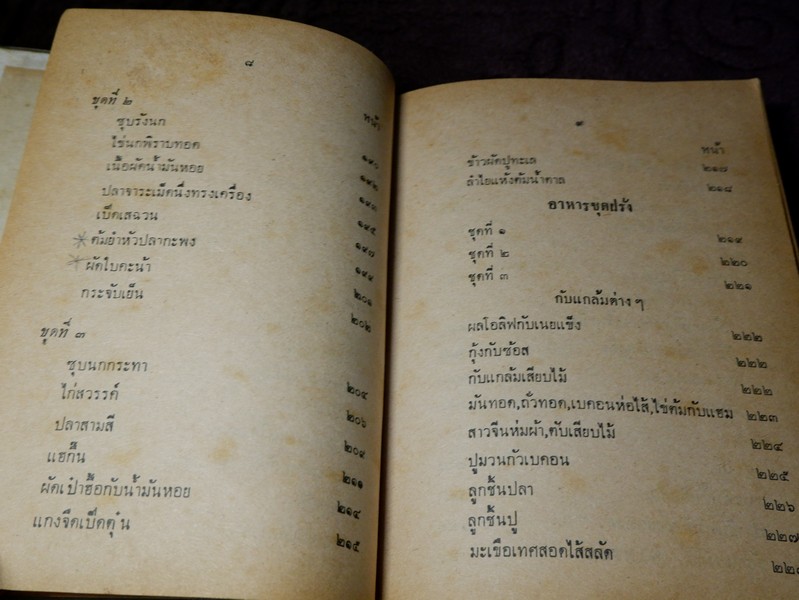 ๘
ชุดที่ ๒
หน้า
ซุบรังนก ๑๙๐
ไข่นกพิราบทอด ๑๙๒
เนื้อผัดน้ำมันหอย ๑๙๓
ปลาจาระเม็ดนึ่งทรงเครื่อง ๑๙๕
เป็ดเสฉวน ๑๙๗
ต้มยำหัวปลากะพง ๑๙๙
ผัดใบคะน้า ๒๐๑
กระจับเย็น ๒๐๒
ชุดที่ ๓
ซุบนกกระทา ๒๐๔
ไก่สวรรค์ ๒๐๖
ปลาสามสี ๒๐๙
แฮ่กึ๊น ๒๑๑
ผัดเป๋าฮื้อกับน้ำมันหอย ๒๑๔
แกงจืดเป็ดตุ๋น ๒๑๕
๙
หน้า
ข้าวผัดปูทะเล ๒๑๗
ลำไยแห้งต้มน้ำตาล ๒๑๘
อาหารชุดฝรั่ง
ชุดที่ ๑ ๒๑๙
ชุดที่ ๒ ๒๒๐
ชุดที่ ๓ ๒๒๑
กับแกล้มต่าง ๆ
ผลโอลิฟกับเนยแข็ง ๒๒๒
กุ้งกับซ้อส ๒๒๒
กับแกล้มเสียบไม้ ๒๒๒
มันทอด,ถั่วทอด,เบคอนห่อไส้,ไข่ต้มกับแฮม ๒๒๓
สาวจีนห่มผ้า,ตับเสียบไม้ ๒๒๔
ปูม้วนกัวเบคอน ๒๒๕
ลูกชิ้นปลา ๒๒๖
ลูกชิ้นปู ๒๒๗
มะเขือเทศสอดไส้สลัด